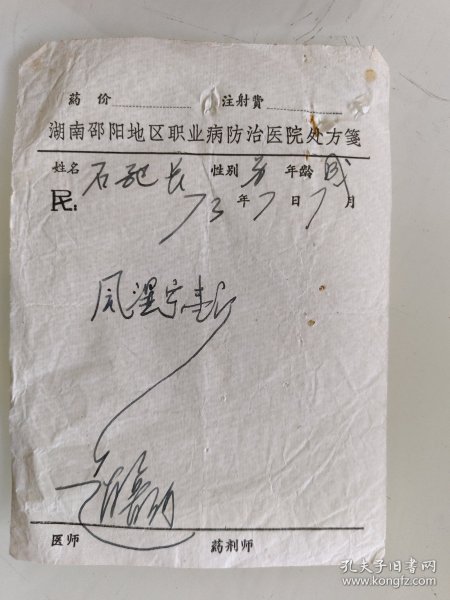 药价 注射費
湖南邵阳地区职业病防治医院处方笺
姓名 石 长 性别 男 年龄 成
民: 73 年 7 日 7 月
风湿宁
医师 药剂师
孔夫子旧书网
www.kongfz.com